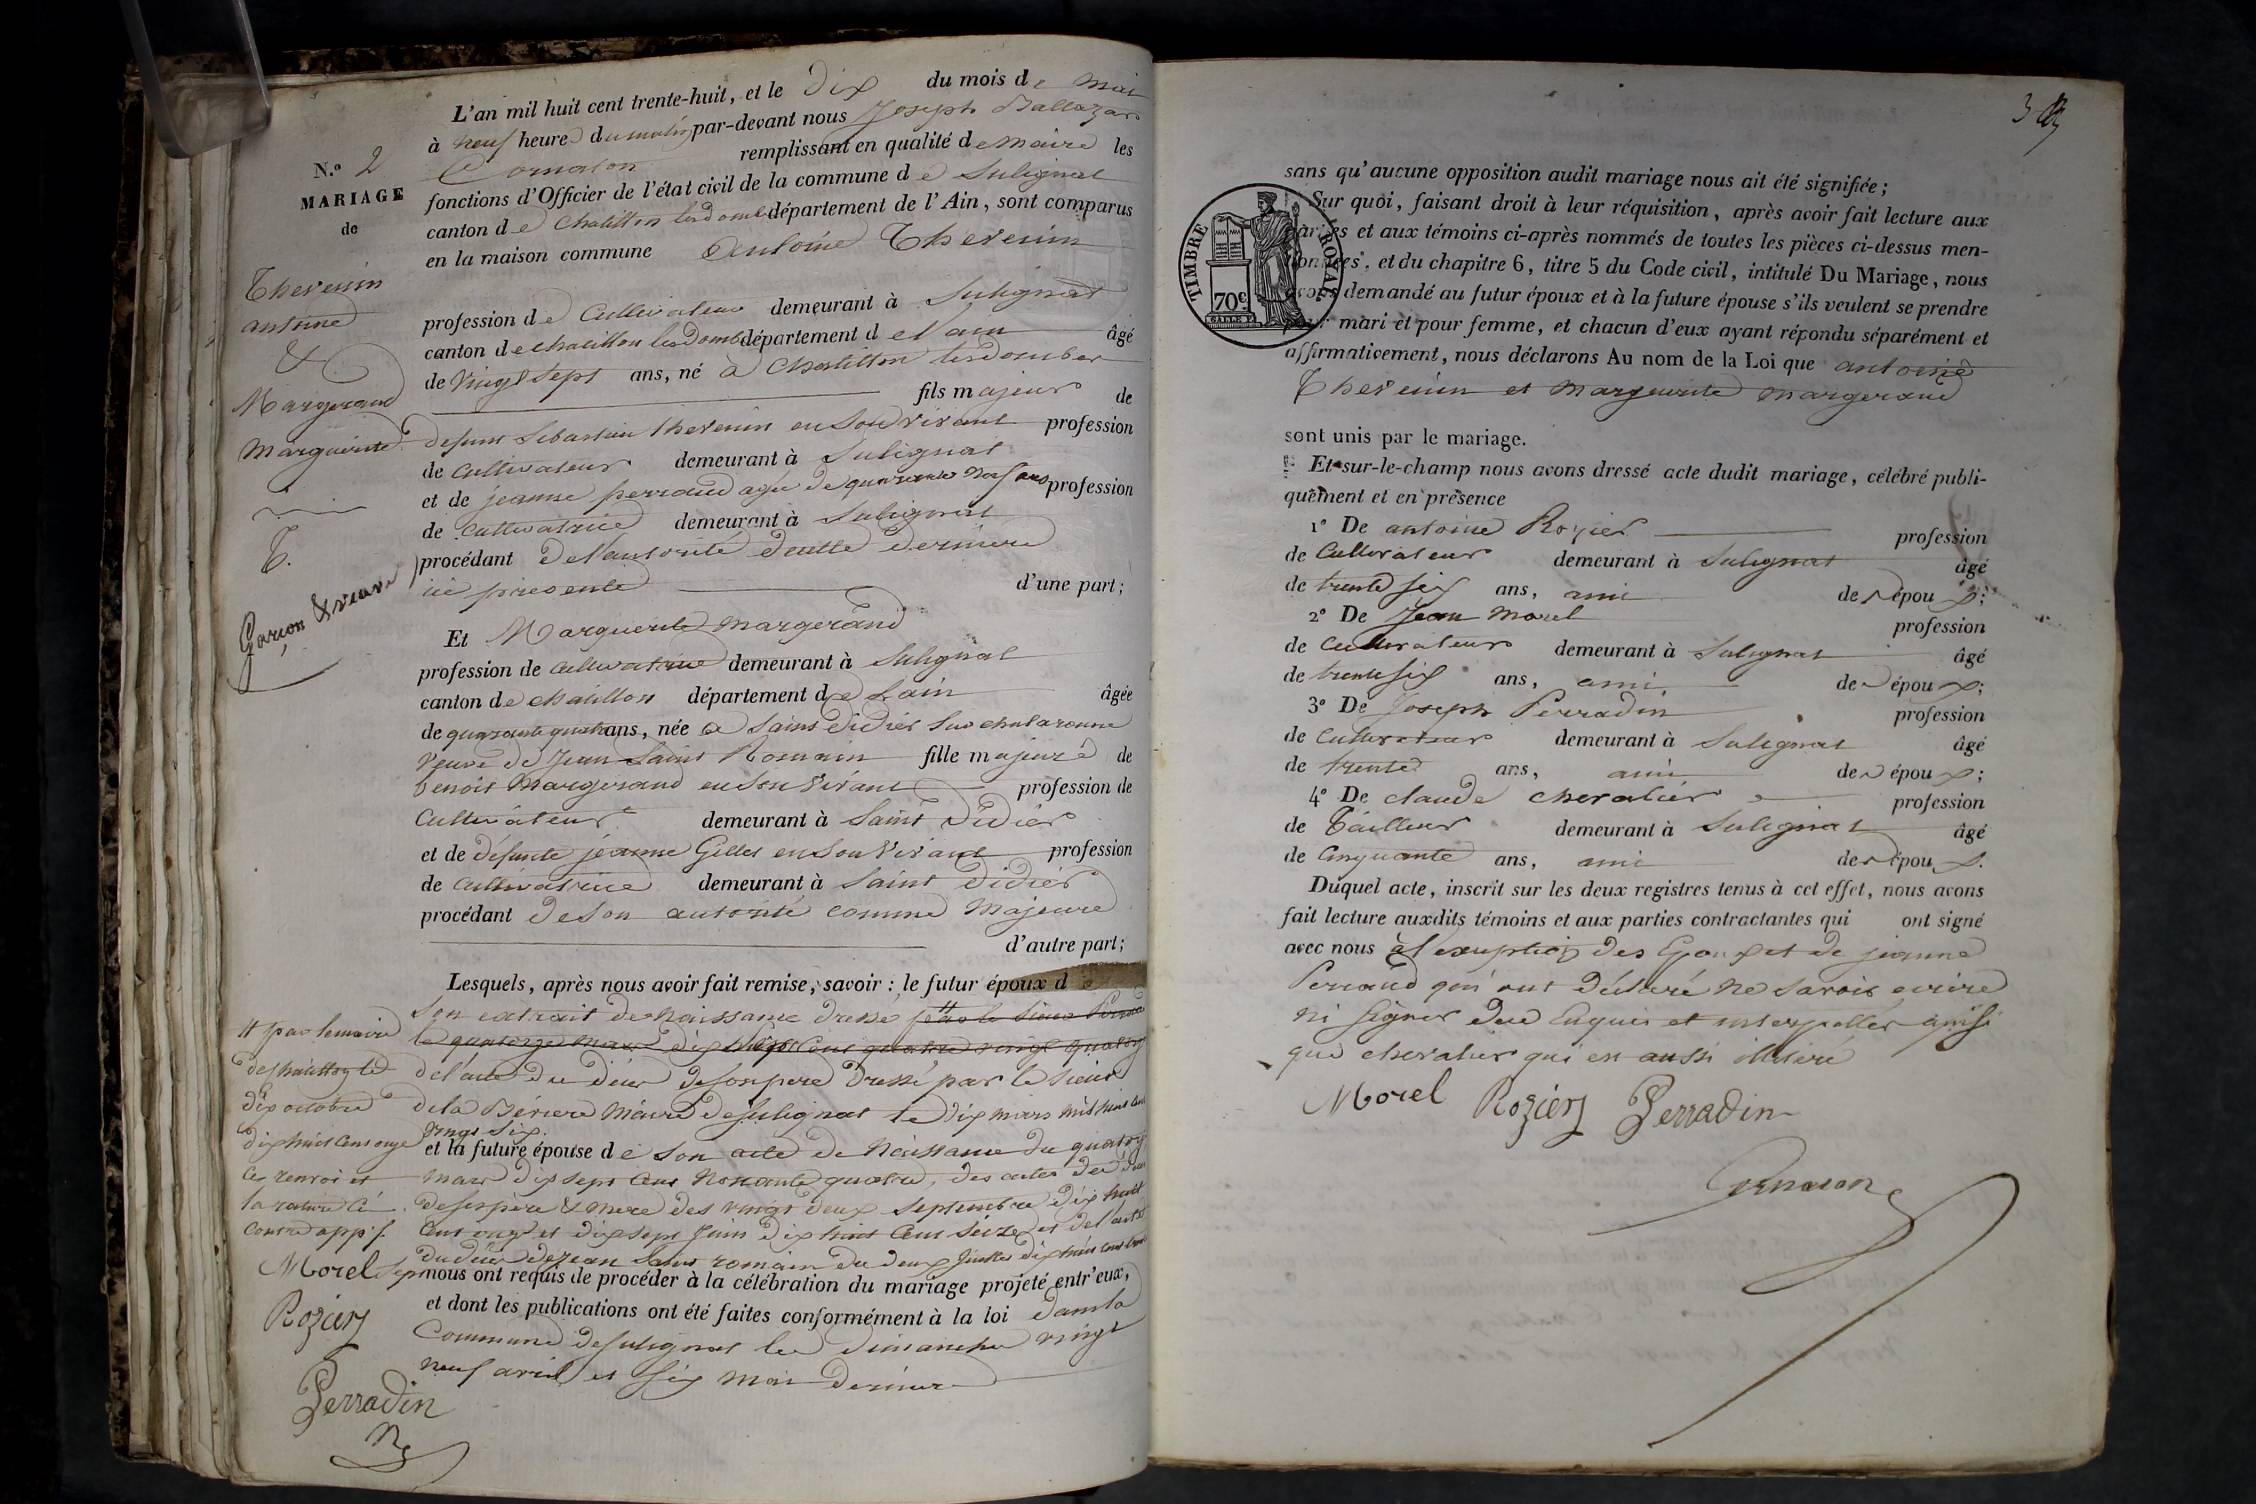 N.o 2
MARIAGE
de
Thevenin
antoine
&
Margerand
Marguerite
T.
Garçon & veuve
L'an mil huit cent trente-huit, et le Dix du mois de Mai
à neuf heures du matin par-devant nous Joseph Baltazar
Cornaton remplissant en qualité de Maire les
fonctions d'Officier de l'état civil de la commune de Sulignat
canton de Chatillon lesdombes département de l'Ain, sont comparus
en la maison commune Antoine Thevenin
profession de Cultivateur demeurant à Sulignat
canton de chatillon lesdombes département de l'ain âgé
de vingt sept ans, né à Chatillon lesdombes
fils majeur de
defunt Sebastien thevenin en Son vivant profession
de cultivateur demeurant à Sulignat
et de jeanne perraud agée de quarante neuf ans profession
de cultivatrice demeurant à Sulignat
procédant de l'autorité de cette derniere
ici presente d'une part;
Et Marguerite Margerand
profession de cultivatrice demeurant à Sulignat
canton de chatillon département de Lain âgée
de quarante quatre ans, née à Saint didier Sur chalaronne
veuve de Jean Saint Romain fille majeure de
benoit Margerand en Son vivant profession de
Cultivateur demeurant à Saint Didier
et de défunte jeanne Gilles en Son vivant profession
de cultivatrice demeurant à Saint Didier
procédant de Son autorité comme Majeure
d'autre part;
Lesquels, après nous avoir fait remise, savoir : le futur époux de
Son extrait de Naissance dressé # par le Sieur
le quatorze mars dix sept Cent quatre vingt quatorze
de l'acte du déces de Son pere dressé par le Sieur
de la Bévière Maire de Sulignat le dix mars mil huit cent
vingt Six.
et la future épouse de Son acte de Naissance du quatorze
mars dix sept Cent Nonante quatre, des actes de déces
de Ses père & mere des vingt deux Septembre dix huit
Cent onze et dix sept Juin dix huit Cent Seize et de l'acte
du déces de Jean Saint romain du deux Juillet dix huit cent trente
Sept nous ont requis de procéder à la célébration du mariage projeté entr'eux,
et dont les publications ont été faites conformément à la loi dans la
Commune de Sulignat les dimanches vingt
neuf avril et Six Mai dernier
# par le maire
de Chatillon le
dix octobre
dix huit Cent onze
Ce renvoi et
la rature Ci
contre app.s
Morel
Roziers
Perradin
sans qu'aucune opposition audit mariage nous ait été signifiée;
Sur quoi, faisant droit à leur réquisition, après avoir fait lecture aux
mariés et aux témoins ci-après nommés de toutes les pièces ci-dessus men-
tionnées, et du chapitre 6, titre 5 du Code civil, intitulé Du Mariage, nous
avons demandé au futur époux et à la future épouse s'ils veulent se prendre
pour mari et pour femme, et chacun d'eux ayant répondu séparément et
affirmativement, nous déclarons Au nom de la Loi que antoine
Thevenin et Marguerite Margerand
sont unis par le mariage.
Et sur-le-champ nous avons dressé acte dudit mariage, célébré publi-
quement et en présence
1° De antoine Rozier profession
de Cultivateur demeurant à Sulignat âgé
de trente six ans, ami des époux;
2° De Jean Morel profession
de Cultivateur demeurant à Sulignat âgé
de trente six ans, ami des époux;
3° De Joseph Perradin profession
de Cultivateur demeurant à Sulignat âgé
de trente ans, ami des époux;
4° De claude chevalier profession
de Tailleur demeurant à Sulignat âgé
de Cinquante ans, ami des époux.
Duquel acte, inscrit sur les deux registres tenus à cet effet, nous avons
fait lecture auxdits témoins et aux parties contractantes qui ont signé
avec nous à l'exception des Epoux et de jeanne
Perraud qui ont déclaré ne Savoir ecrire
ni Signer due Enquis et interpellés ainsi
que chevalier qui est aussi illitéré
Morel Roziers Perradin
Cornaton
TIMBRE ROYAL
70c